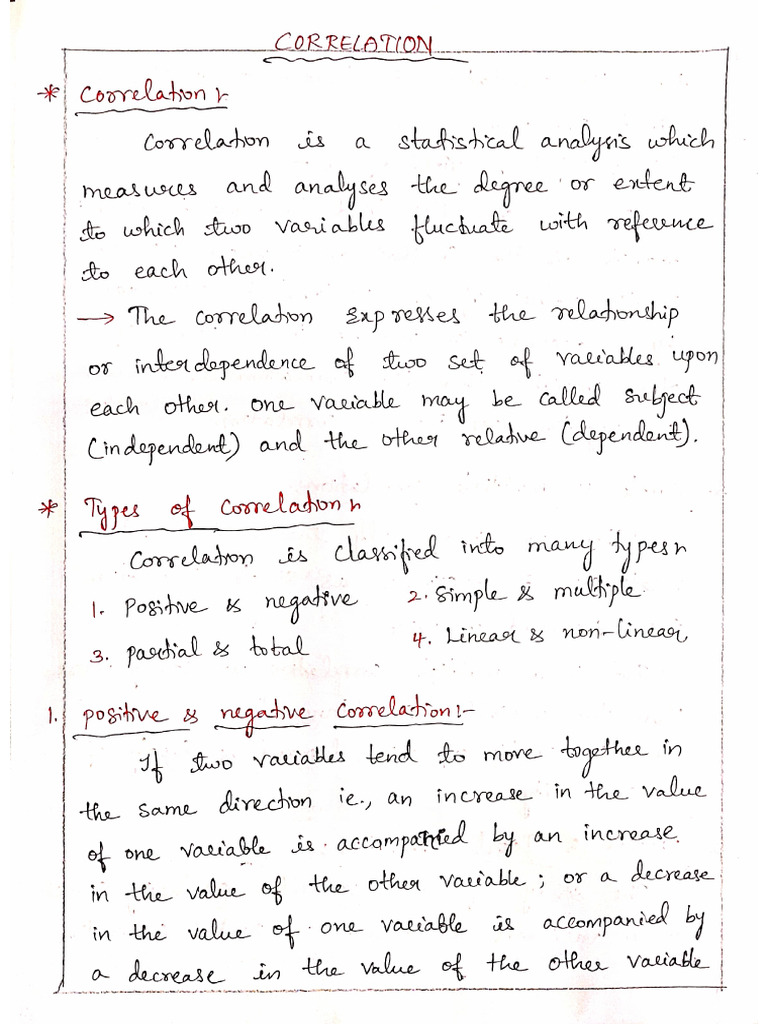 CORRELATION
* Correlation :-
Correlation is a statistical analysis which
measures and analyses the degree or extent
to which two variables fluctuate with reference
to each other.
→ The correlation Expresses the relationship
or interdependence of two set of variables upon
each other. one variable may be called subject
(independent) and the other relative (dependent).
* Types of correlation :-
Correlation is classified into many types :-
1. Positive & negative 2. Simple & multiple
3. partial & total 4. Linear & non-linear
1. positive & negative correlation :-
If two variables tend to move together in
the same direction ie., an increase in the value
of one variable is accompanied by an increase
in the value of the other variable ; or a decrease
in the value of one variable is accompanied by
a decrease in the value of the other variable